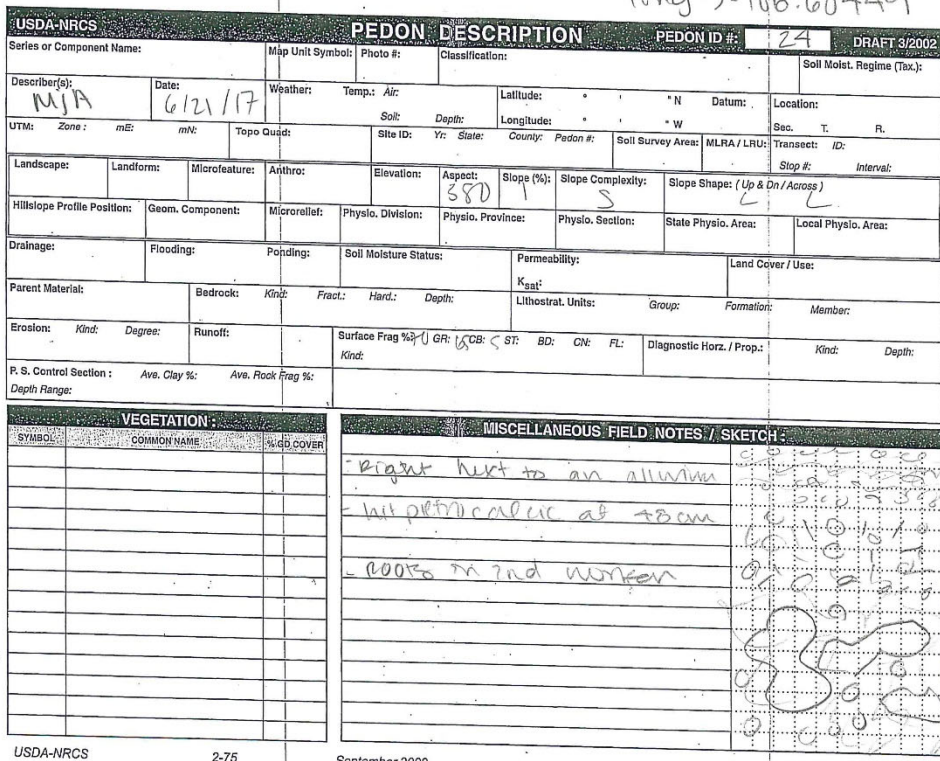 long
USDA-NRCS PEDON DESCRIPTION PEDON ID #: 24 DRAFT 3/2002
Series or Component Name: Map Unit Symbol: Photo #: Classification: Soil Moist. Regime (Tax.):
Describer(s): MJA Date: 6/21/17 Weather: Temp.: Air: Latitude: ° ' " N Datum: Location:
Soil: Depth: Longitude: ° ' " W Sec. T. R.
UTM: Zone: mE: mN: Topo Quad: Site ID: Yr: State: County: Pedon #: Soil Survey Area: MLRA / LRU: Transect: ID:
Stop #: Interval:
Landscape: Landform: Microfeature: Anthro: Elevation: Aspect: 380 Slope (%): 1 Slope Complexity: S Slope Shape: (Up & Dn / Across) L L
Hillslope Profile Position: Geom. Component: Microrelief: Physio. Division: Physio. Province: Physio. Section: State Physio. Area: Local Physio. Area:
Drainage: Flooding: Ponding: Soil Moisture Status: Permeability: Land Cover / Use:
Ksat:
Parent Material: Bedrock: Kind: Fract.: Hard.: Depth: Lithostrat. Units: Group: Formation: Member:
Erosion: Kind: Degree: Runoff: Surface Frag %: GR: 15 CB: 5 ST: BD: CN: FL: Diagnostic Horz. / Prop.: Kind: Depth:
Kind:
P. S. Control Section : Ave. Clay %: Ave. Rock Frag %:
Depth Range:
VEGETATION :
SYMBOL COMMON NAME % GD COVER
MISCELLANEOUS FIELD NOTES / SKETCH :
- Right next to an alluvium
- hit petrocalcic at 48 cm
- roots in 2nd horizon
USDA-NRCS 2-75 September 2002